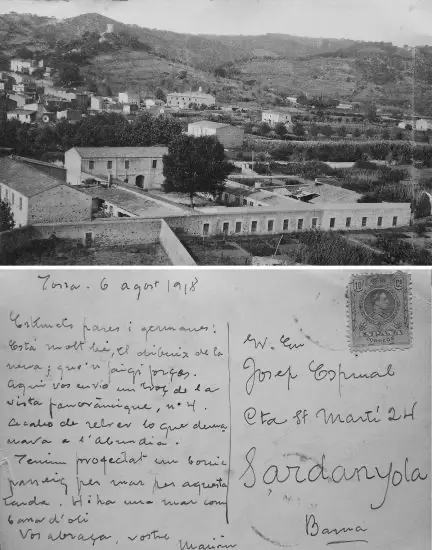 Tossa - 6 agost 1918
Estimats pares i germanes:
Está molt bé, el dibuix de la
nova
Aqui vos envio un troç de la
vista panorámique, nº 4.
Acabo de rebrer lo que dema
nava a l'Abundia.
Tenim projectat un bonic
passeig per mar per aquesta
tarda. Hi ha una mar com
bassa d'oli
Vos abraça, vostre
10 Cs 10
ESPAÑA
CORREOS
Josep Espinal
Cta St Martí 24
Sardanyola
Barna